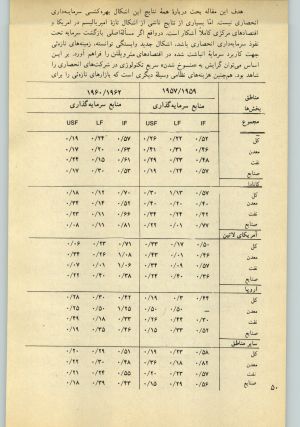 هدف این مقاله بحث دربارهٔ همهٔ نتایج این اشکال بهره‌کشی سرمایه‌داری
انحصاری نیست. اما بسیاری از نتایج ناشی از اشکال تازهٔ امپریالیسم در آمریکا و
اقتصادهای مرکزی کاملا آشکار است. درواقع اگر مسألهٔ اصلی بازگشت سرمایه تحت
نفوذ سرمایه‌داری انحصاری باشد، اشکال جدید وابستگی توانسته، زمینه‌های تازه‌ئی
جهت کاربرد سرمایهٔ انباشته شده، در اقتصادهای متروپلتن را فراهم آورد. بر این
اساس می‌توان گرایش به «منسوخ شدن» سریع تکنولوژی در شرکت‌های انحصاری را
شاهد بود. هم‌چنین هزینه‌های نظامی وسیلهٔ دیگری است که بازارهای تازه‌ئی برای
مناطق ۱۹۵۷/۱۹۵۹ ۱۹۶۰/۱۹۶۲
بخش‌ها منابع سرمایه‌گذاری منابع سرمایه‌گذاری
مجموع IF LF USF IF LF USF
کل ۰/۵۲ ۰/۲۲ ۰/۲۶ ۰/۵۷ ۰/۲۴ ۰/۱۹
معدن ۰/۴۶ ۰/۳۱ ۰/۴۱ ۰/۶۳ ۰/۲۰ ۰/۱۷
نفت ۰/۴۸ ۰/۲۳ ۰/۲۹ ۰/۶۱ ۰/۱۵ ۰/۲۴
صنایع ۰/۵۷ ۰/۲۴ ۰/۱۹ ۰/۵۳ ۰/۳۰ ۰/۱۷
کانادا
کل ۰/۵۷ ۱/۱۳ ۰/۳۰ ۰/۷۰ ۰/۱۲ ۰/۱۸
معدن ۰/۴۰ ۰/۲۰ ۰/۴۰ ۰/۵۲ ۰/۱۴ ۰/۳۴
نفت ۰/۴۲ ۰/۲۴ ۰/۳۴ ۰/۶۶ ۰/۱۱ ۰/۲۳
صنایع ۰/۷۷ ۰/۰۱ ۰/۲۲ ۰/۸۱ ۰/۱۱ ۰/۰۸
آمریکای لاتین
کل ۰/۵۰ ۰/۱۷ ۰/۳۳ ۰/۷۱ ۰/۲۳ ۰/۰۶
معدن ۰/۴۶ ۰/۰۱ ۰/۴۳ ۱/۰۸ ۰/۲۶ ۰/۳۴
نفت ۰/۵۷ ۰/۰۹ ۰/۳۴ ۱/۰۶ ۰/۰۱ ۰/۰۷
صنایع ۰/۳۶ ۰/۴۰ ۰/۲۴ ۰/۳۸ ۰/۴۰ ۰/۲۲
اروپا
کل ۰/۴۴ ۰/۳۰ ۰/۱۹ ۰/۴۲ ۰/۳۰ ۰/۲۸
معدن — ۰/۵۰ ۰/۵۰ ۰/۲۵ ۰/۵۰ ۰/۲۵
نفت ۰/۳۰ ۰/۴۴ ۰/۲۶ ۰/۳۳ ۰/۱۸ ۰/۴۹
صنایع ۰/۵۲ ۰/۳۳ ۰/۱۵ ۰/۴۶ ۰/۳۵ ۰/۱۹
سایر مناطق
کل ۰/۵۸ ۰/۲۳ ۰/۱۹ ۰/۵۱ ۰/۲۹ ۰/۲۰
معدن ۰/۸۲ ۰/۱۸ ۰/۳۶ ۰/۴۸ ۰/۳۰ ۰/۲۲
نفت ۰/۵۷ ۰/۲۰ ۰/۲۰ ۰/۵۵ ۰/۲۴ ۰/۲۱
صنایع ۰/۵۶ ۰/۲۹ ۰/۱۵ ۰/۴۳ ۰/۳۹ ۰/۱۸
۵۰